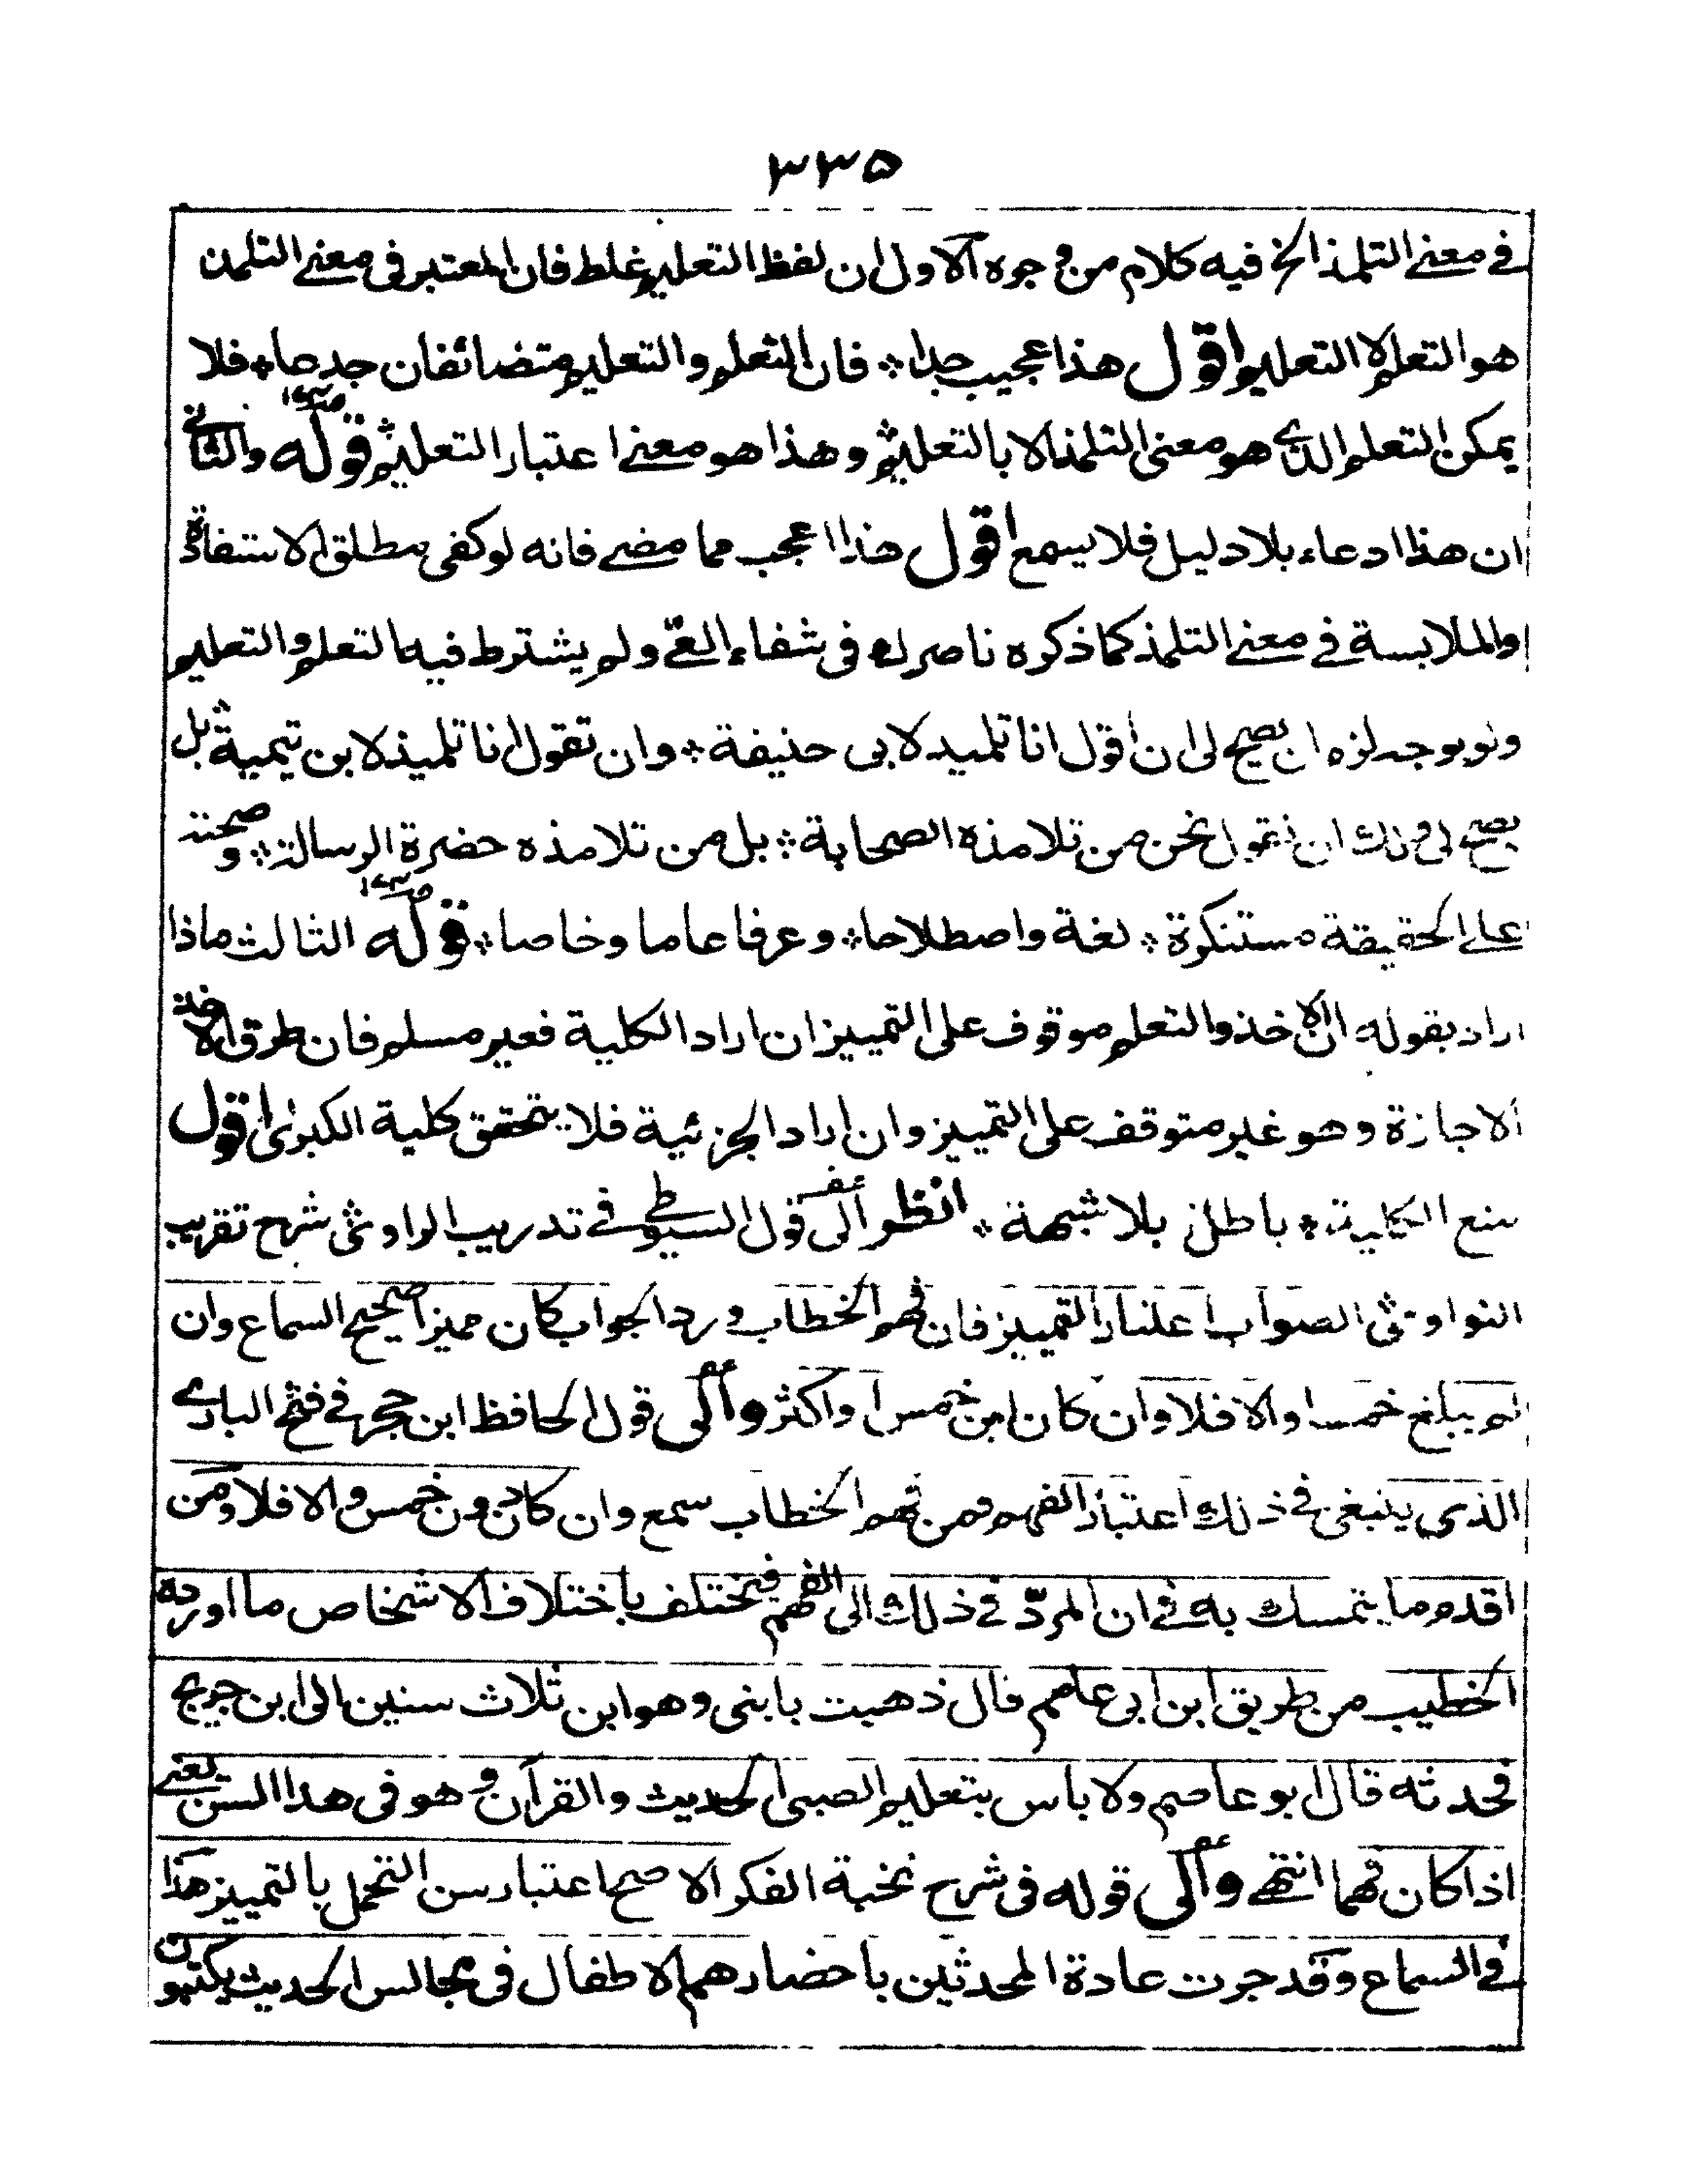 ٣٣٥
في معنى التلمذ الخ فيه كلام من وجوه الاول ان لفظ التعليم غلط فان المعتبر في معنى التلمذ
هو التعلم لا التعليم اقول هذا عجيب جدا ٭ فان التعلم والتعليم متضائفان جدعا ٭ فلا
يمكن التعلم الذي هو معنى التلمذ الا بالتعليم ٭ وهذا هو معنى اعتبار التعليم ٭ قوله والثاني
ان هذا ادعاء بلا دليل فلا يسمع اقول هذا اعجب مما مضى فانه لو كفى مطلق الاستفادة
والملابسة في معنى التلمذ كما ذكره ناصرك في شفاء العي ولم يشترط فيه التعلم والتعليم
ولو بوجه لزم ان يصح لى ان اقول انا تلميذ لابى حنيفة ٭ وان تقول انا تلميذ لابن تيمية ٭ بل
يصح لى ولك ان نقول نحن من تلامذة الصحابة ٭ بل من تلامذه حضرة الرسالة ٭ وصحته
على الحقيقة مستنكرة ٭ لغة واصطلاحا ٭ وعرفا عاما وخاصا ٭ قوله الثالث ماذا
اراد بقوله ان الاخذ والتعلم موقوف على التمييز ان اراد الكلية فغير مسلم فان طرق الاخذ
الاجازة وهو غير متوقف على التمييز وان اراد الجزئية فلا يتحقق كلية الكبرى اقول
منع الكلية ٭ باطل بلا شبهة ٭ انظر الى قول السيوطي في تدريب الراوى شرح تقريب
النواوى الصواب اعتبار التمييز فان فهم الخطاب ورد الجواب كان مميزا صحيح السماع وان
لم يبلغ خمسا والا فلا وان كان ابن خمس او اكثر والى قول الحافظ ابن حجر في فتح الباري
الذى ينبغى في ذلك اعتبار الفهم فمن فهم الخطاب سمع وان كان دون خمس والا فلا ومن
اقدم ما يتمسك به في ان المرد في ذلك الى الفهم فيختلف باختلاف الاشخاص ما اورده
الخطيب من طريق ابن ابى عاصم قال ذهبت بابنى وهو ابن ثلاث سنين الى ابن جريج
فحدثه قال ابو عاصم ولا باس بتعليم الصبى الحديث والقرآن وهو في هذا السن يعني
اذا كان فهما انتهى والى قوله في شرح نخبة الفكر الاصح اعتبار سن التحمل بالتمييز هذا
في السماع وقد جرت عادة المحدثين باحضارهم الاطفال في مجالس الحديث يكتبون